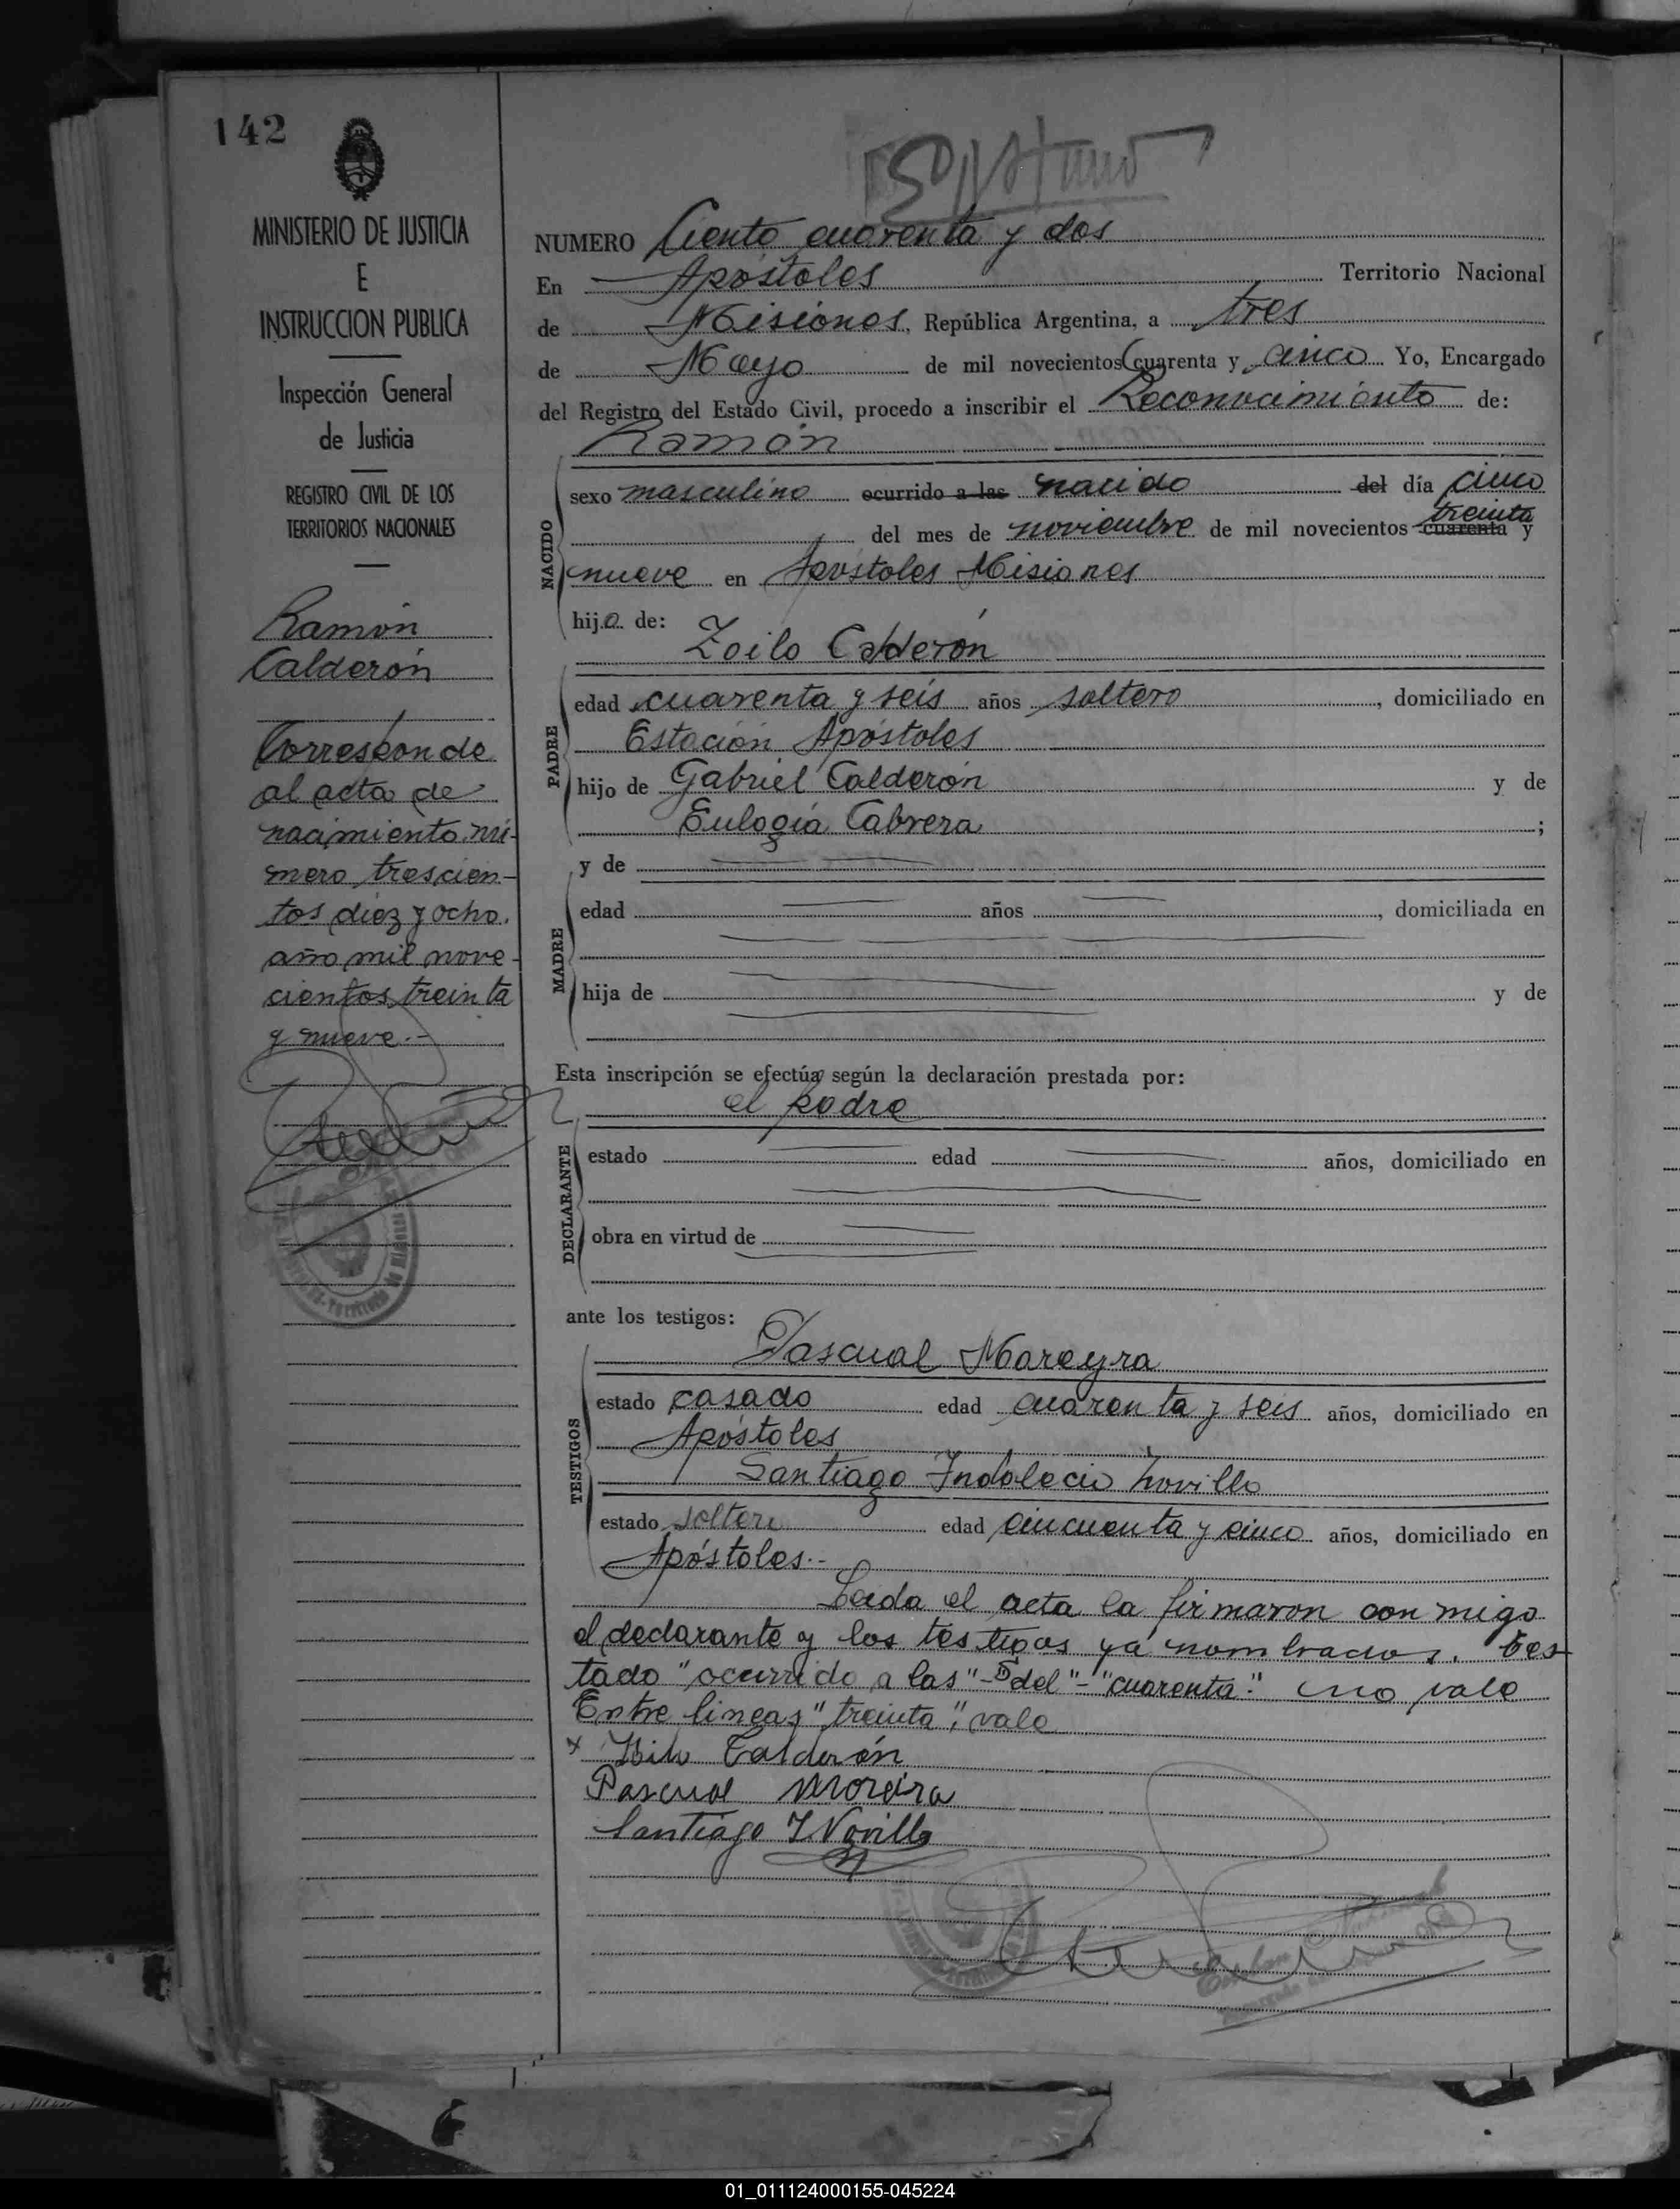 142
MINISTERIO DE JUSTICIA
E
INSTRUCCION PUBLICA
Inspección General
de Justicia
REGISTRO CIVIL DE LOS
TERRITORIOS NACIONALES
Ramón
Calderón
Corresponde
al acta de
nacimiento nú-
mero trescien-
tos diez y ocho.
año mil nove-
cientos treinta
y nueve.-
NUMERO Ciento cuarenta y dos
En Apóstoles Territorio Nacional
de Misiones, República Argentina, a tres
de Mayo de mil novecientos cuarenta y cinco Yo, Encargado
del Registro del Estado Civil, procedo a inscribir el Reconocimiento de:
Ramón
NACIDO
sexo masculino ocurrido a las nacido del día cinco
treinta
del mes de noviembre de mil novecientos cuarenta y
nueve en Apóstoles Misiones
hijo de:
Zoilo Calderón
PADRE
edad cuarenta y seis años soltero, domiciliado en
Estación Apóstoles
hijo de Gabriel Calderón y de
Eulogia Cabrera;
y de
MADRE
edad años, domiciliada en
hija de y de
Esta inscripción se efectúa según la declaración prestada por:
el padre
DECLARANTE
estado edad años, domiciliado en
obra en virtud de
ante los testigos:
Pascual Moreyra
TESTIGOS
estado casado edad cuarenta y seis años, domiciliado en
Apóstoles
Santiago Indalecio Novillo
estado soltero edad cincuenta y cinco años, domiciliado en
Apóstoles.-
Leida el acta la firmaron conmigo
el declarante y los testigos ya nombrados. Tes-
tado "ocurrido a las"-"del"-"cuarenta." no vale
Entre lineas "treinta", vale
x Zoilo Calderón
Pascual Moreira
Santiago I Novillo
01_011124000155-045224